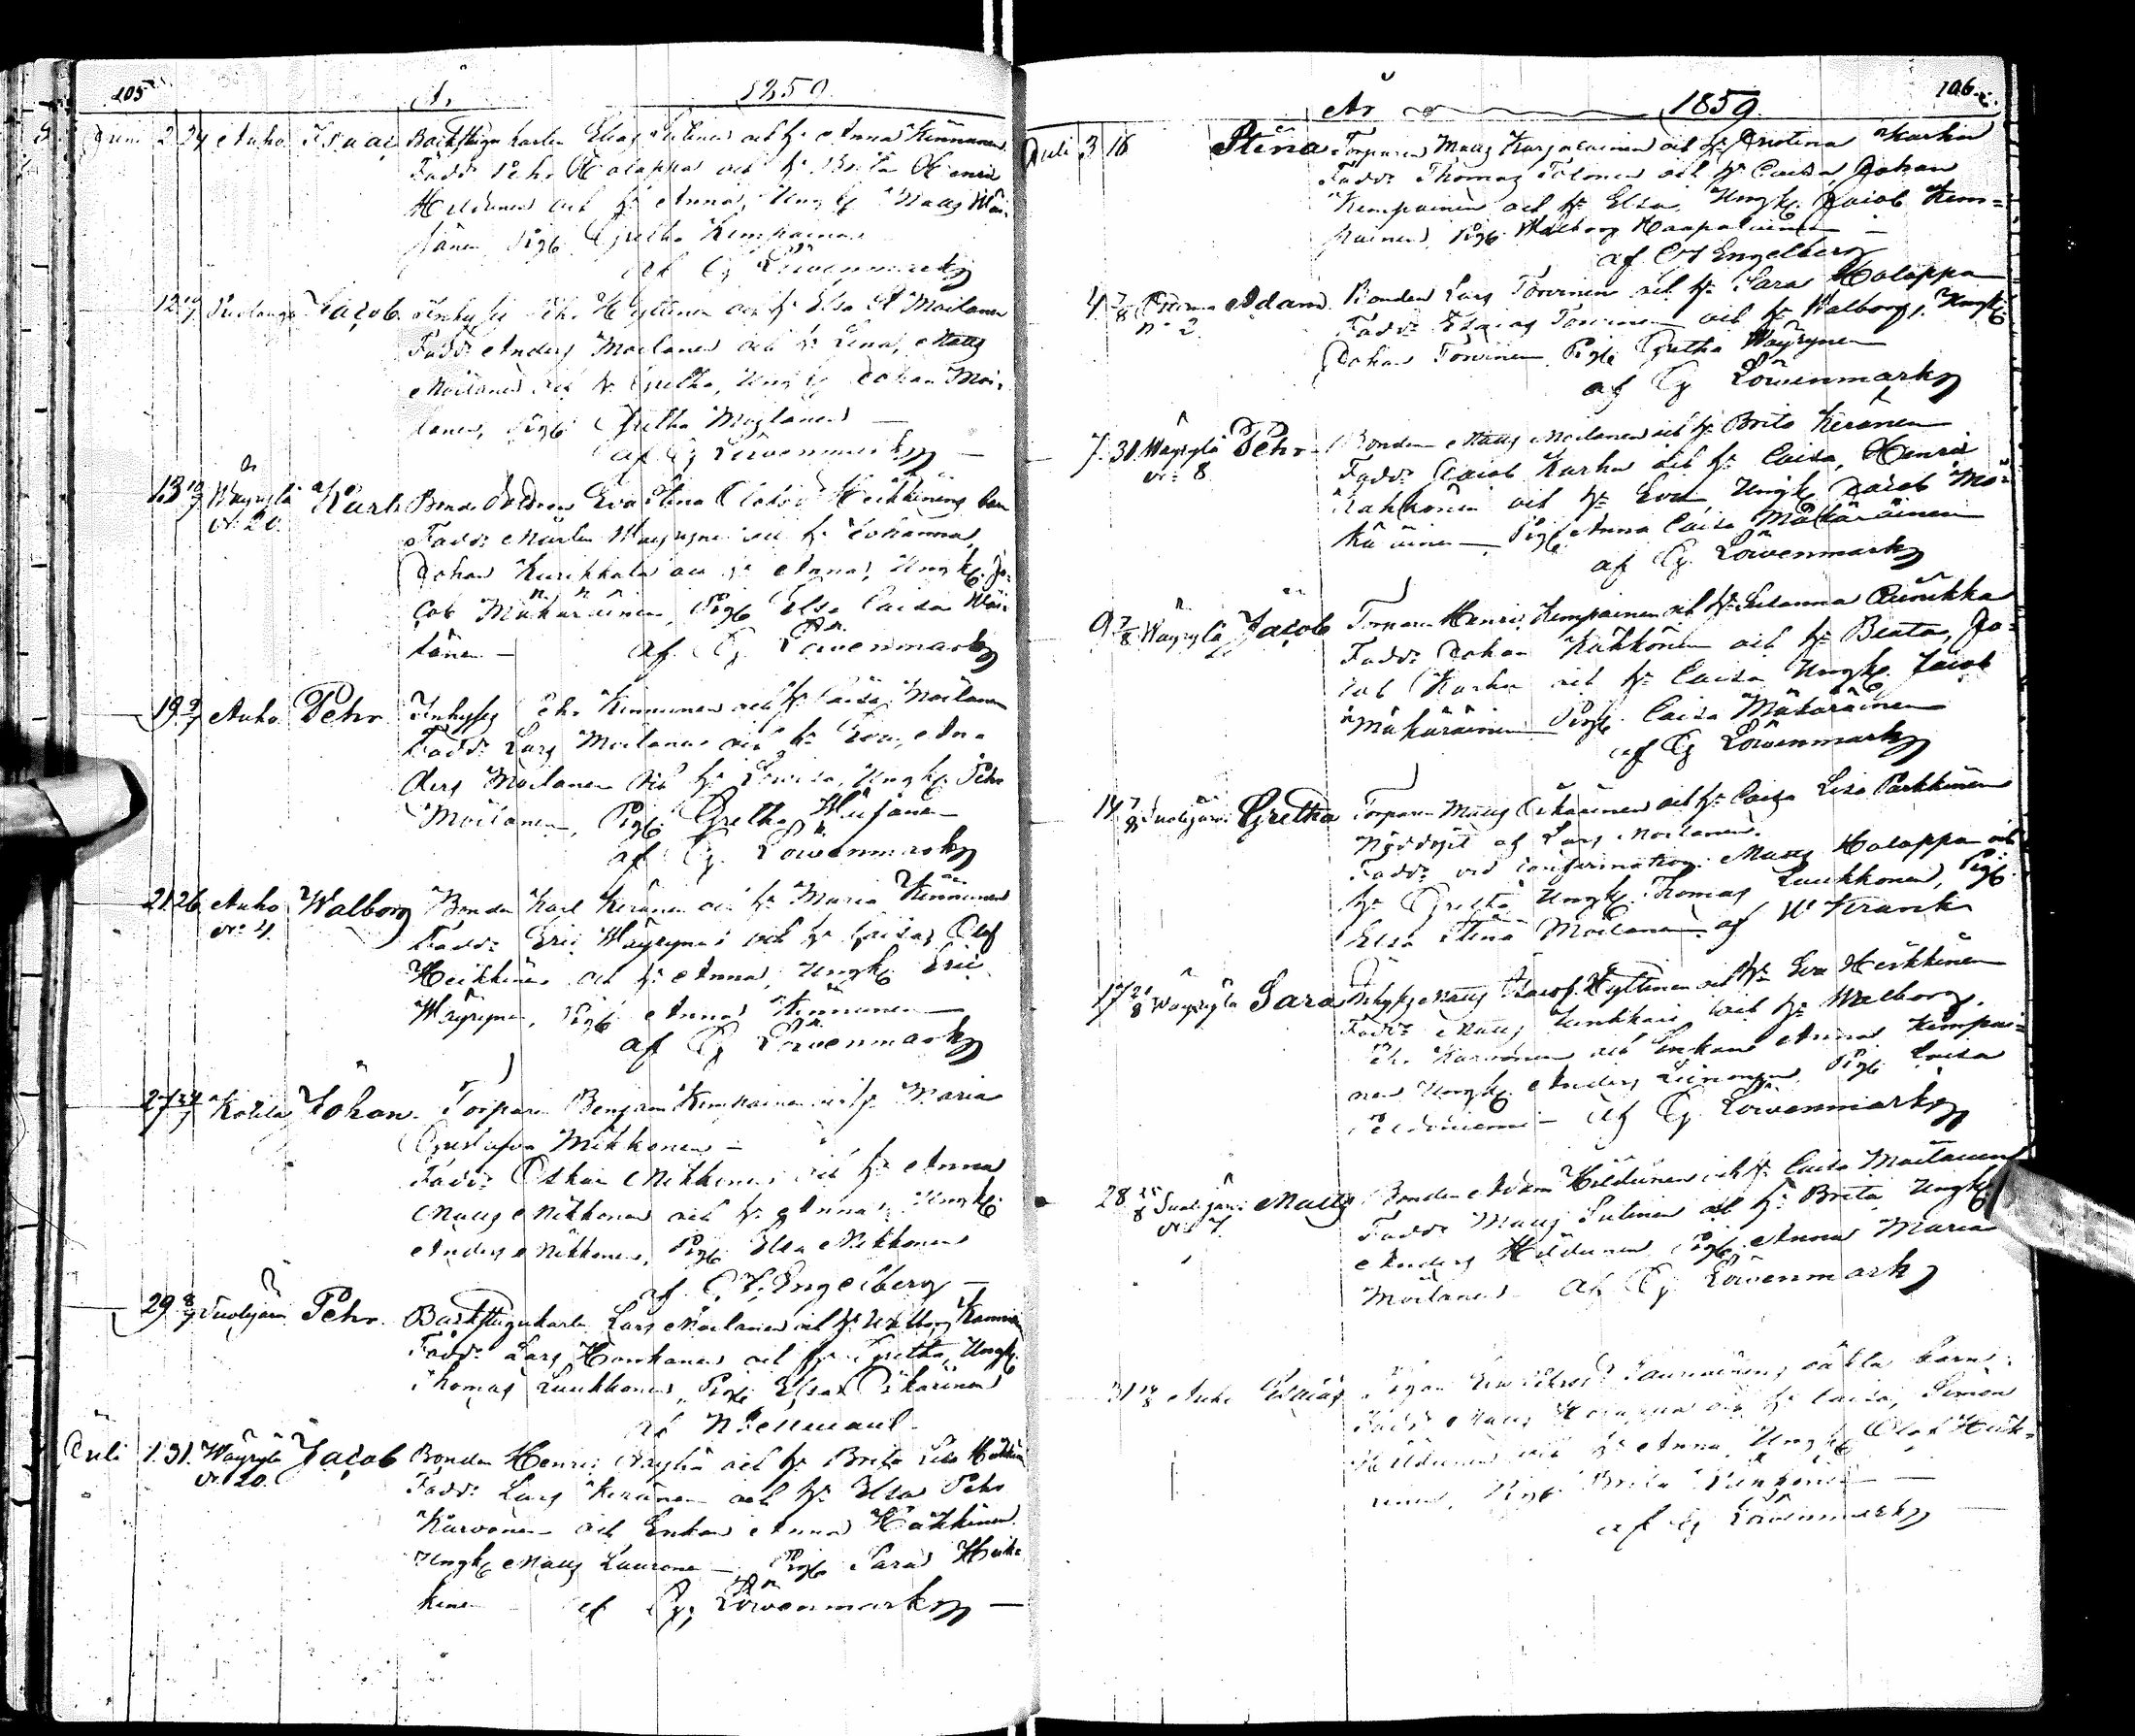 105
År 1859
Juni 2 24 Auho Isaac Backstugu karlen Elias och hu Anna Kinnunen
Fadd: Pehr Holappa och hu Brita, Henric
Hildunen och hu Anna, Ungk Matts Wäi-
sänen, Pig: Gretha Kempainen
af Cg Löwenmark
12 10/7 Puolanga Jacob Inhyses Pehr Hyttinen och hu Elsa St Moilanen
Fadd: Anders Moilanen och hu Lena, Matts
Moilanen och hu Gretha, Ungk Johan Moi-
lanen, Pig: Gretha Moilanen
af Cg Löwenmark
13 10/7 Wäyrylä Nr 20 Karl Bonde Eva Stina Heikkinens barn
Fadd: Mårten Wäyrynen och hu Johanna,
Johan Kurikkala och hu Anna, Ungk: Ja-
cob Mäkäräinen, Pig: Elsa Caisa Wäi-
sänen – af Cg Löwenmark
19 9/7 Auho Pehr Inhyses Pehr Kinnunen och hu Caisa Moilanen
Fadd: Lars Moilanen och hu Eva, An-
ders Moilanen och hu Lovisa, Ungk: Pehr
Moilanen, Pig: Gretha Wäisänen
af Cg Löwenmark
21 26 Auho Nr 4 Walborg Bonden Karl Keränen och hu Maria Kinnunen
Fadd: Eric Wäyrynen och hu Caisa, Olof
Heikkinen och hu Anna, Ungk: Eric
Wäyrynen, Pig: Anna Kinnunen
af Cg Löwenmark
27 24/7 Johan Torparen Benjam Kempainen och hu Maria
Gustafva Mikkonen –
Fadd: Oskar Mikkonen och hu Anna
Matts Mikkonen och hu Anna, Ungk:
Anders Mikkonen, Pig: Elsa Mikkonen
af C. F. Engelberg –
29 8/7 Suolijärvi Pehr Backstugukarlen Lars Moilanen och hu Walborg
Fadd: Lars Honkanen och hu Gretha, Ungk:
Thomas Luukkonen, Pig: Elsa Pikarinen
af
Juli 1 31 Wäyrylä Nr 20 Jacob Bonden Henric Näyhä och hu Brita Lisa
Fadd: Lars Keränen och hu Elsa, Pehr
Karvonen och Enkan Anna Häkkinen
Ungk: Matts Lauronen – Pig: Sara Heik-
kinen af Cg Löwenmark –
106
År 1859
Juli 3 16 Stina Torparen Matts Karjalainen och hu Kristina Karhu
Fadd: Thomas Tolonen och hu Caisa, Johan
Kempainen och hu Elsa, Ungk: Jacob Kem-
painen, Pig: Walborg Haapalainen –
af CF Engelberg
4 7/8 Nr 2 Adam Bonden Lars Torvinen och hu Sara Holappa
Fadd: Esaias Torvinen och hu Walborg, Ungk:
Johan Torvinen, Pig: Gretha Wäyrynen
af Cg Löwenmark
7 31 Wäyrylä Nr 8 Pehr Bonden Matts Moilanen och hu Brita Keränen
Fadd: Jacob Karhu och hu Caisa, Henric
Kähkönen och hu Eva, Ungk Jacob Mä-
käräinen – Pig: Anna Caisa Mäkäräinen
af Cg Löwenmark
9 7/8 Wäyrylä Jacob Torparen Henric Kempainen och hu Susanna
Fadd: Johan Kähkönen och hu Beata, Ja-
cob Karhu och hu Caisa, Ungk: Jacob
Mäkäräinen – Pig: Caisa Mäkäräinen
af Cg Löwenmark
14 7/8 Suolijärvi Gretha Torparen Matts Pikarinen och hu Caisa Lisa Parkkinen
Nöddöpt af Lars Moilanen.
Fadd: vid confirmation: Matts Holappa och
hu Gretha Ungk: Thomas Luukkonen, Pig:
Elsa Stina Moilanen af W Franck
17 21/8 Wäyrylä Sara Inhyses Matts Hyttinen och hu Eva Heikkinen
Fadd: Matts Junkkari och hu Walborg,
Pehr Karvonen och Enkan Anna Kempai-
nen Ungk: Anders Leinonen, Pig: Caisa
– af Cg Löwenmark
28 28/8 Suolijärvi Matts Bonden Adam Hildunen och hu Caisa Moilanen
Fadd: Matts Sutinen och hu Brita, Ungk:
Anders Hildunen, Pig: Anna Maria
Moilanen af Cg Löwenmark
31 Auho Esaias Pigan Eva oäkta barn:
Fadd: Matts Holappa och hu Caisa, Simon
Hildunen och hu Anna, Ungk: Olof Heik-
kinen, Pig: Brita –
af Cg Löwenmark –